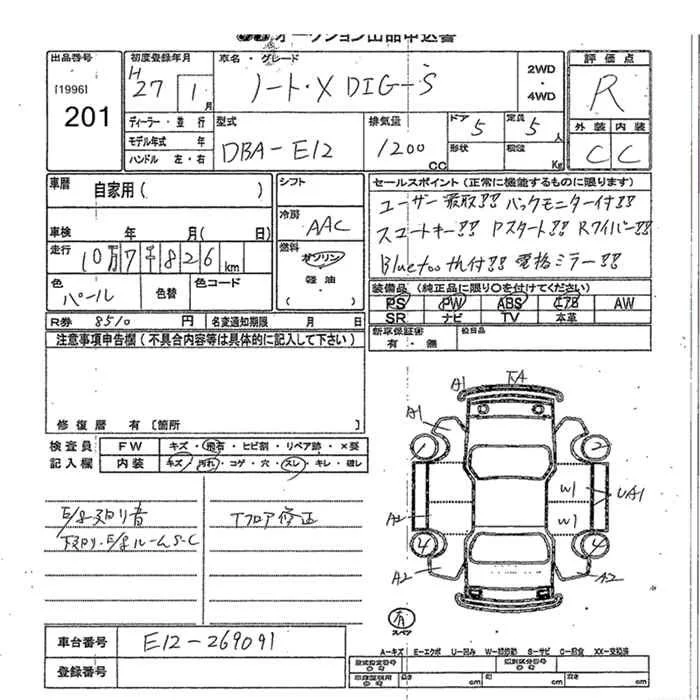 オークション出品申込書
出品番号
[1996]
201
初度登録年月
H27 1月
車名・グレード
ノート・X DIG-S
2WD
・
4WD
評価点
R
外装 内装
C C
ディーラー・並行
モデル年式 年
ハンドル 左・右
型式
DBA-E12
排気量
1200cc
ドア 5
形状
定員 5人
積載 Kg
車暦
自家用( )
車検 年 月( 日)
走行
10万7千826km
色
パール
色替
色コード
シフト
冷房
AAC
燃料
ガソリン
軽油
( )
セールスポイント(正常に機能するものに限ります)
ユーザー買取!! バックモニター付!!
スマートキー!! Pスタート!! Rワイパー!!
Bluetooth付!! 電格ミラー!!
装備品(純正品に限り○を付けてください)
PS PW ABS エアB AW
SR ナビ TV 本革
新車保証書
有・無
R券 8510円
名変通知期限 月 日
注意事項申告欄(不具合内容等は具体的に記入して下さい)
修復歴 有〔箇所 〕
検査員 FW キズ・飛石・ヒビ割・リペア跡・×要
記入欄 内装 キズ・汚れ・コゲ・穴・スレ・キレ・破レ
Tフロア修正
A1
A1
2
W1
W1
UA1
A2
4
4
A2
A2
スペア
A-キズ E-エクボ U-凹み W-補修跡 S-サビ C-腐食 XX-交換済
車台番号
E12-269091
登録番号
型式指定番号
類別区分番号
長さ cm
幅 cm
高さ cm